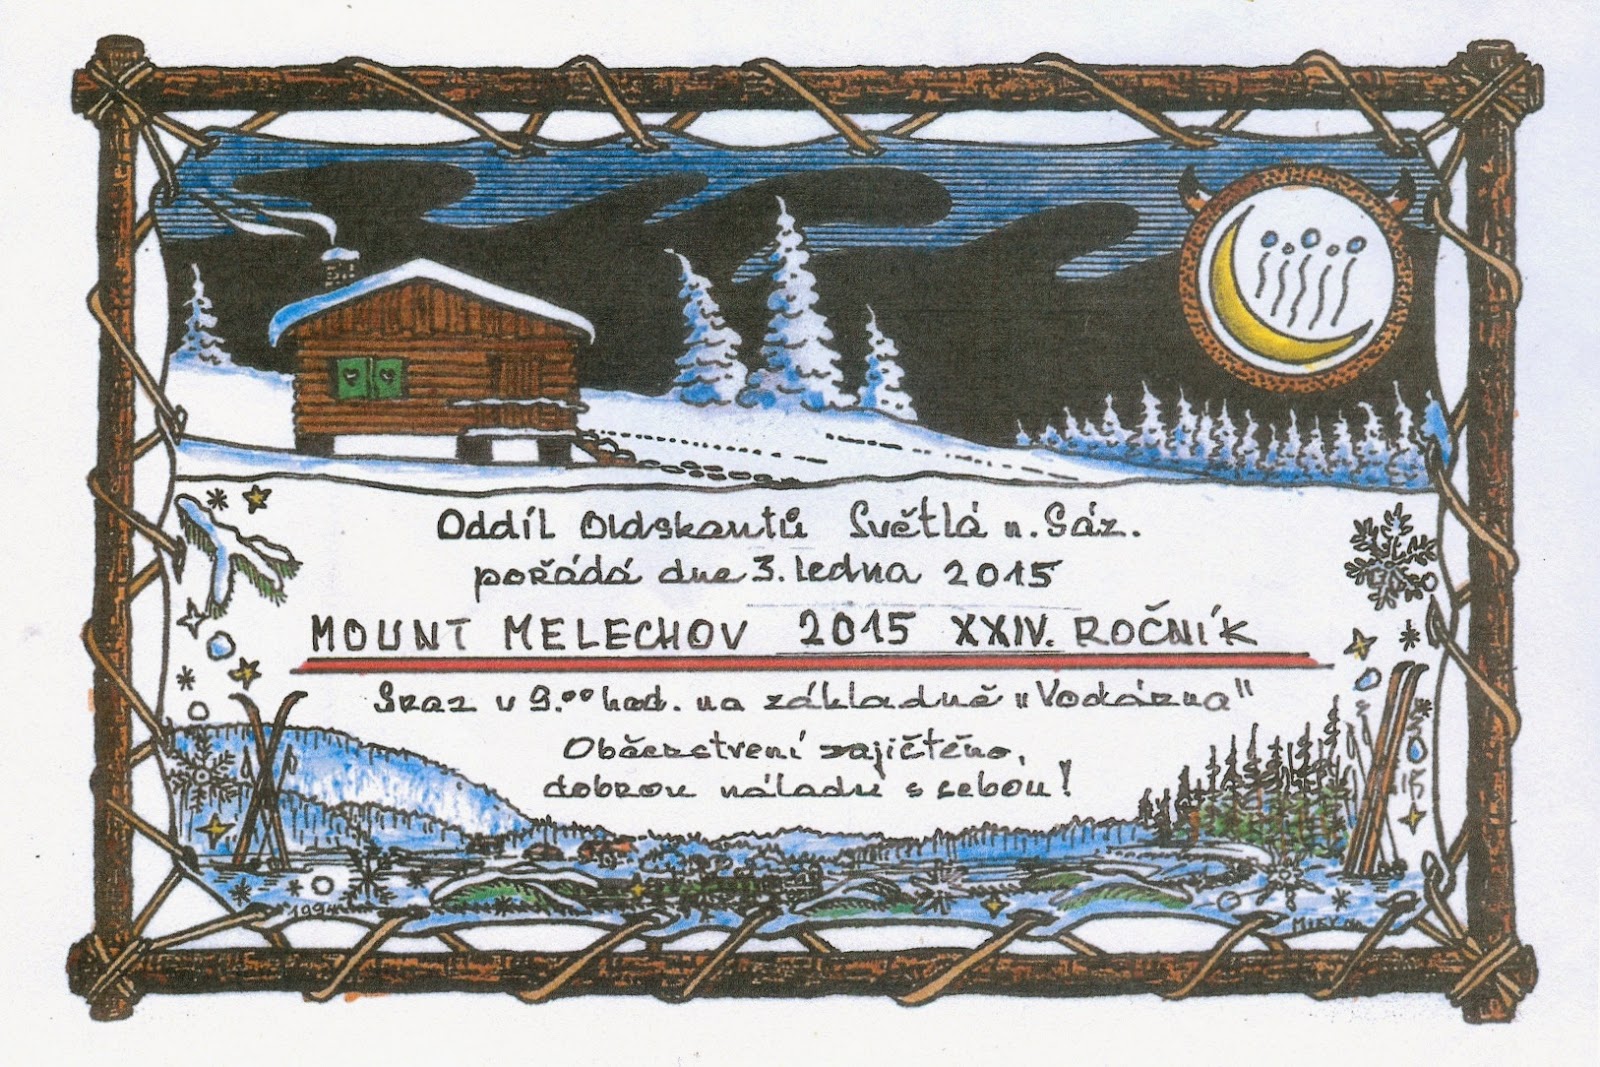 Oddíl Oldskautů Světlá n. Sáz.
pořádá dne 3. ledna 2015
MOUNT MELECHOV 2015 XXIV. ROČNÍK
Sraz v 9.00 hod. na základně „Vodárna"
Občerstvení zajičtěno,
dobrou náladu s sebou!
2015
1994